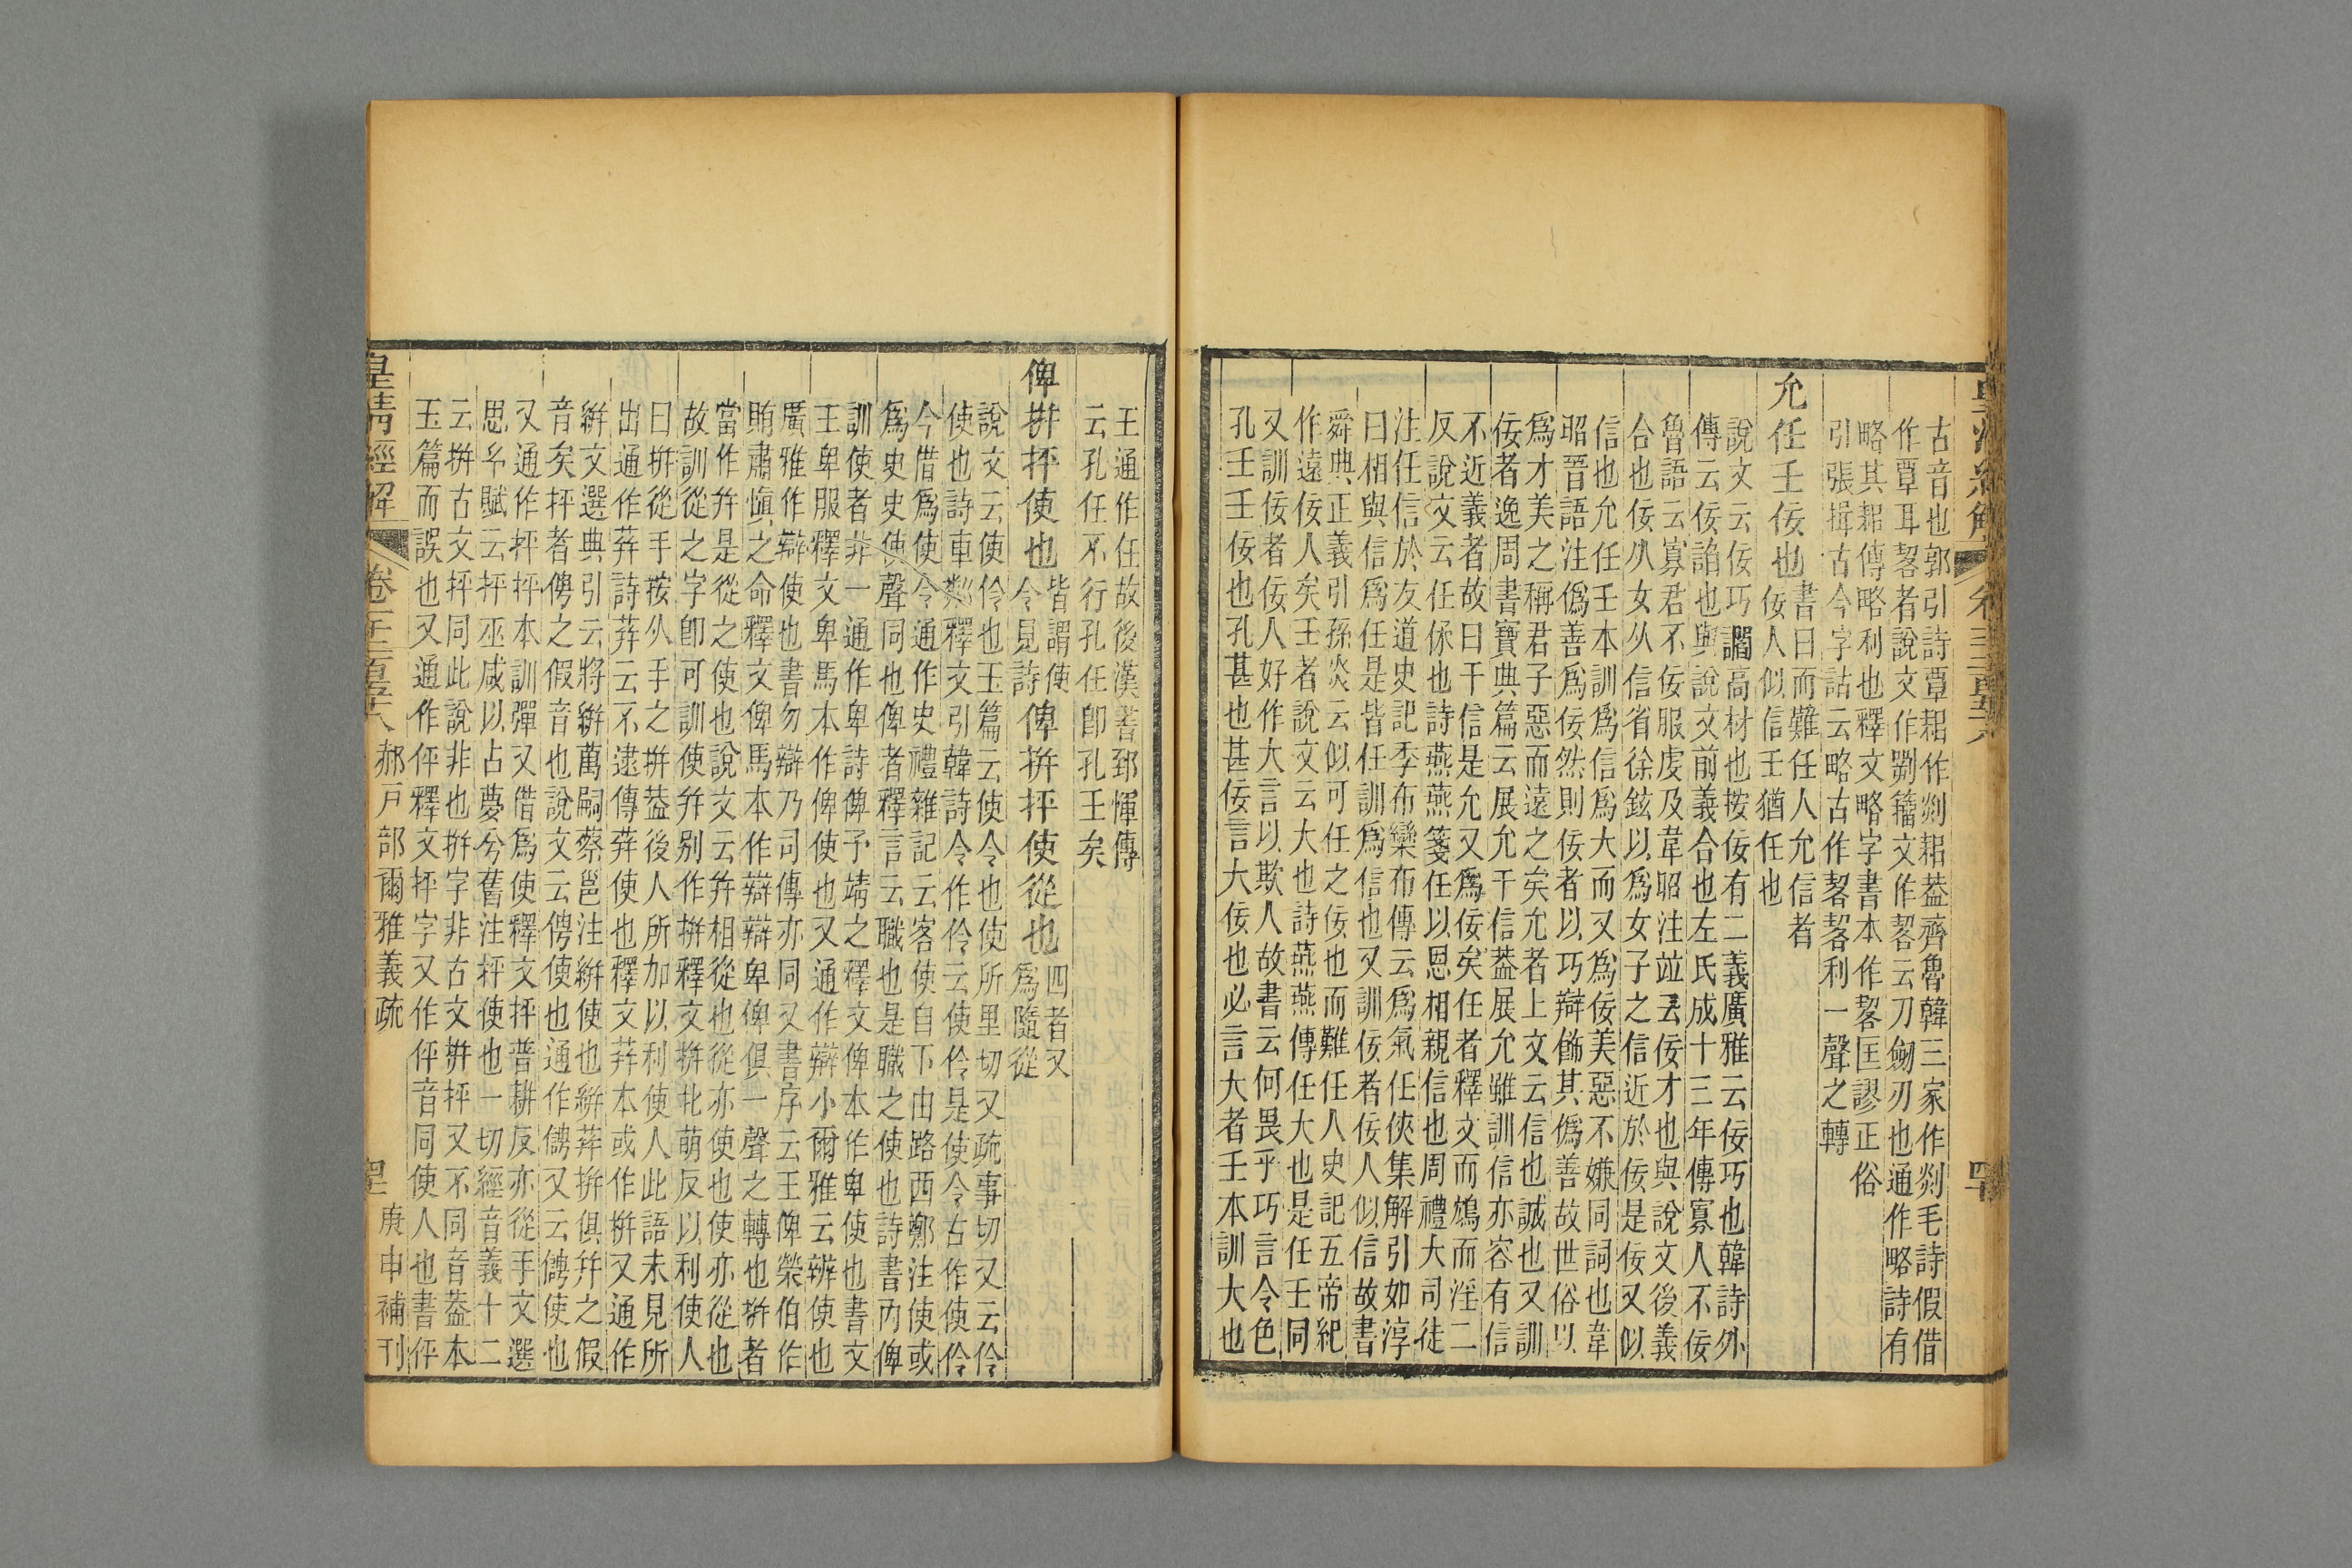 古音也郭引詩覃耜作剡耜葢齊魯韓三家作剡毛詩假借
作覃耳䂮者說文作剠籀文作䂮云刀劒刃也通作略詩有
略其耜傳略利也釋文略字書本作䂮匡謬正俗
引張揖古今字詁云略古作䂮䂮利一聲之轉
允任壬佞也
書曰而難任人允信者
佞人似信壬猶任也
說文云佞巧讇高材也按佞有二義廣雅云佞巧也韓詩外
傳云佞諂也與說文前義合也左氏成十三年傳寡人不佞
魯語云寡君不佞服虔及韋昭注竝云佞才也與說文後義
合也佞从女从信省徐鉉以爲女子之信近於佞是佞又似
信也允任壬本訓爲信爲大而又爲佞美惡不嫌同詞也韋
昭晉語注僞善爲佞然則佞者以巧辯飾其僞善故世俗以
爲才美之稱君子惡而遠之矣允者上文云信也誠也又訓
佞者逸周書寶典篇云展允干信葢展允雖訓信亦容有信
不近義者故曰干信是允又爲佞矣任者釋文而鴆而淫二
反說文云任保也詩燕燕箋任以恩相親信也周禮大司徒
注任信於友道史記季布欒布傳云爲氣任俠集解引如淳
曰相與信爲任是皆任訓爲信也又訓佞者佞人似信故書
舜典正義引孫炎云似可任之佞也而難任人史記五帝紀
作遠佞人矣王者說文云大也詩燕燕傳任大也是任壬同
又訓佞者佞人好作大言以欺人故書云何畏乎巧言令色
孔壬壬佞也孔甚也甚佞言大佞也必言大者壬本訓大也
皇清經解
卷一千二百五十八
四十
王通作任故後漢書郅惲傳
云孔任不行孔任卽孔壬矣
俾拼抨使也
皆謂使
令見詩
俾拼抨使從也
四者又
爲隨從
說文云使伶也玉篇云使令也使所里切又疏事切又云伶
使也詩車鄰釋文引韓詩令作伶云使伶是使令古作使伶
今借爲使令通作史禮雜記云客使自下由路西鄭注使或
爲史史使聲同也俾者釋言云職也是職之使也詩書內俾
訓使者非一通作卑詩俾予靖之釋文俾本作卑使也書文
王卑服釋文卑馬本作俾使也又通作辯小爾雅云辨使也
廣雅作辯使也書勿辯乃司傳亦同又書序云王俾榮伯作
賄肅愼之命釋文俾馬本作辯辯卑俾俱一聲之轉也拼者
當作幷是從之使也說文云幷相從也從亦使也使亦從也
故訓從之字卽可訓使幷别作拼釋文拼北萌反以利使人
曰拼從手按从手之拼葢後人所加以利使人此語未見所
出通作荓詩荓云不逮傳荓使也釋文荓本或作拼又通作
絣文選典引云將絣萬嗣蔡邕注絣使也絣荓拼俱幷之假
音矣抨者俜之假音也說文云俜使也通作㑣又云㑣使也
又通作抨抨本訓彈又借爲使釋文抨普耕反亦從手文選
思𤣥賦云抨巫咸以占夢兮舊注抨使也一切經音義十二
云拼古文抨同此說非也拼字非古文拼抨又不同音葢本
玉篇而誤也又通作伻釋文抨字又作伻音同使人也書伻
皇清經解
卷一千二百五十八
郝戶部爾雅義疏
庚申補刊